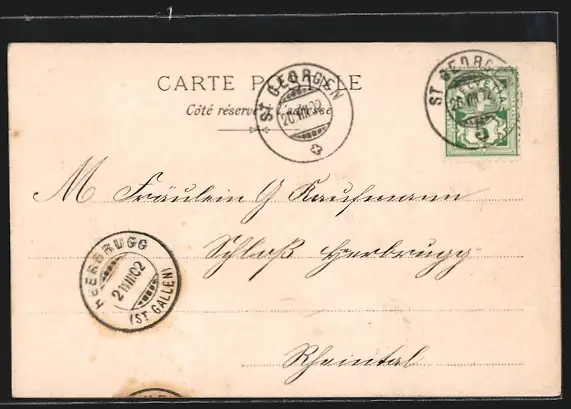 CARTE POSTALE
Côté réservé à l'adresse
ST GEORGEN
20.VIII.02
ST GEORGEN
20.VIII.02
HELVETIA
5
M Fräulein G Kaufmann
Schloß Heerbrugg
HEERBRUGG
21.VIII.02
(ST. GALLEN)
Rheintal